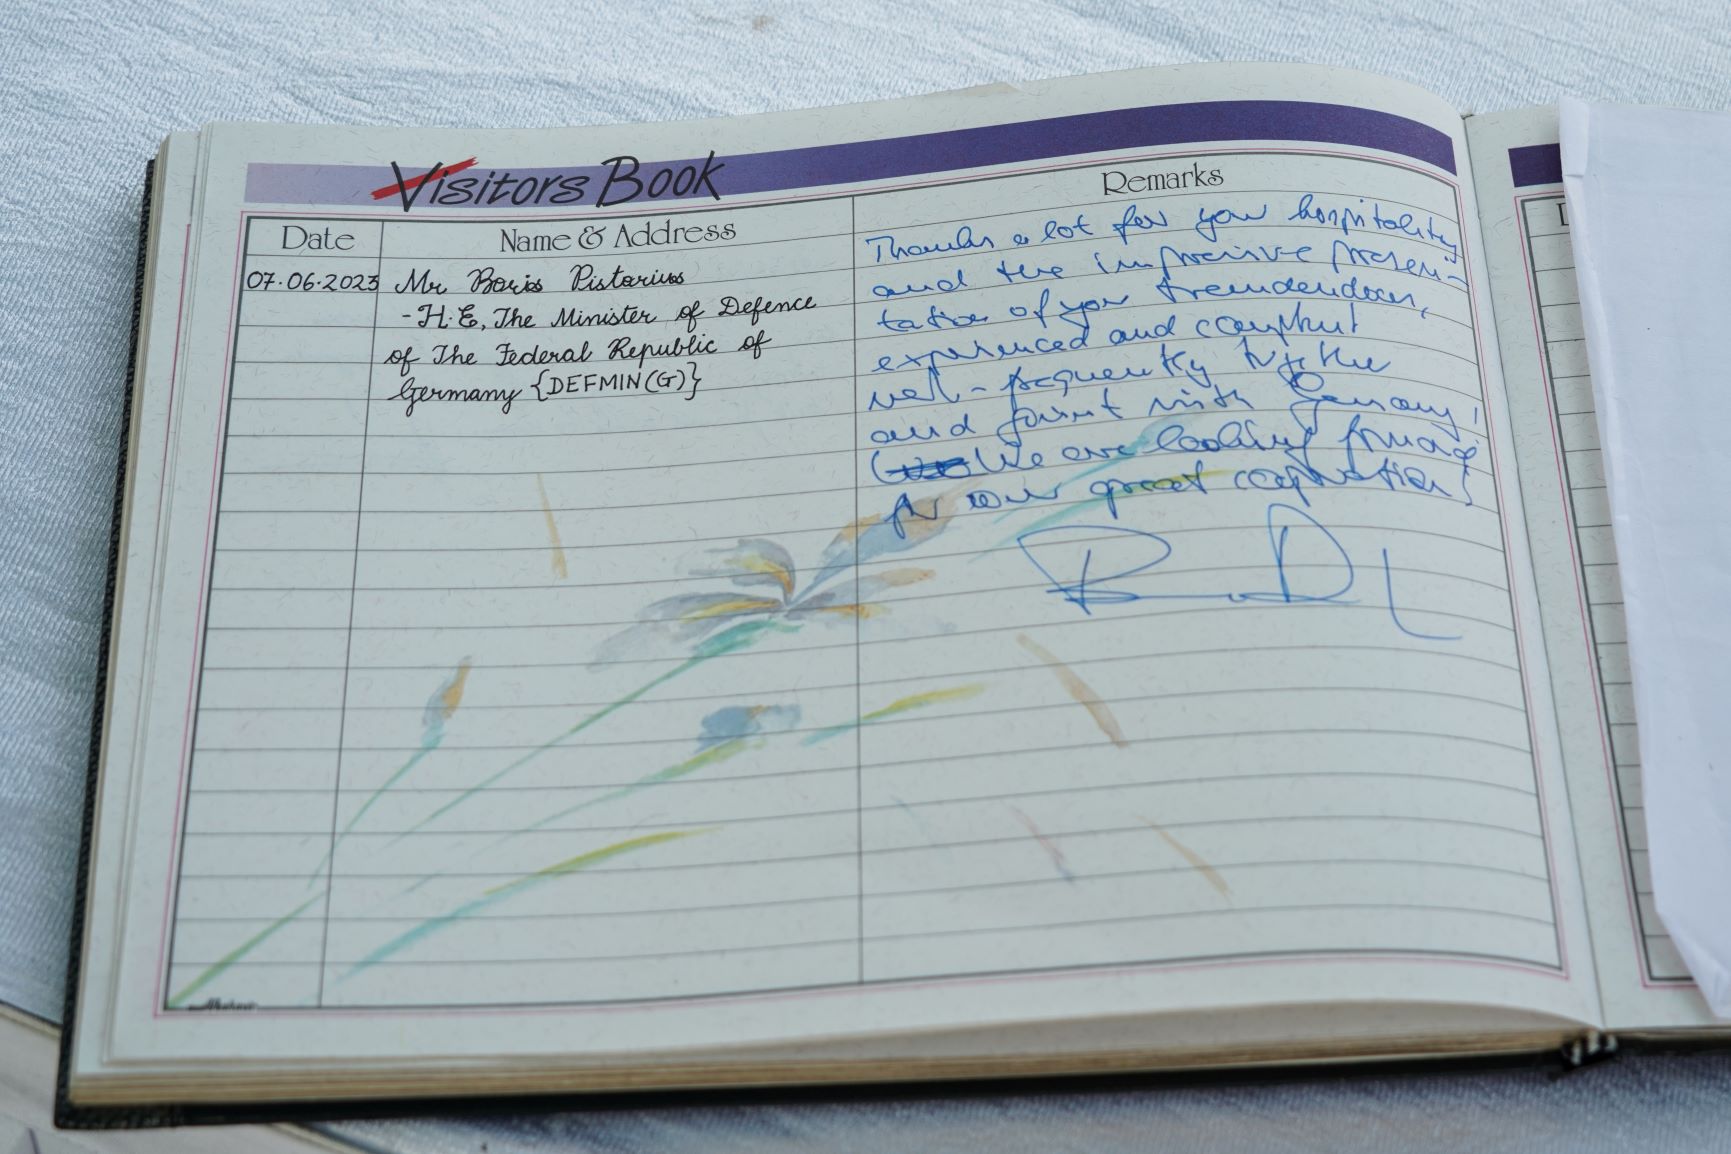 Visitors Book
Date
Name & Address
Remarks
07.06.2023
Mr Boris Pistorius
-H.E, The Minister of Defence
of The Federal Republic of
Germany {DEFMIN(G)}
Thanks a lot for your hospitality
and the impressive presen-
tation of your
experienced and
frequently together
and joint with Germany!
We are looking forward
for our great cooperation!